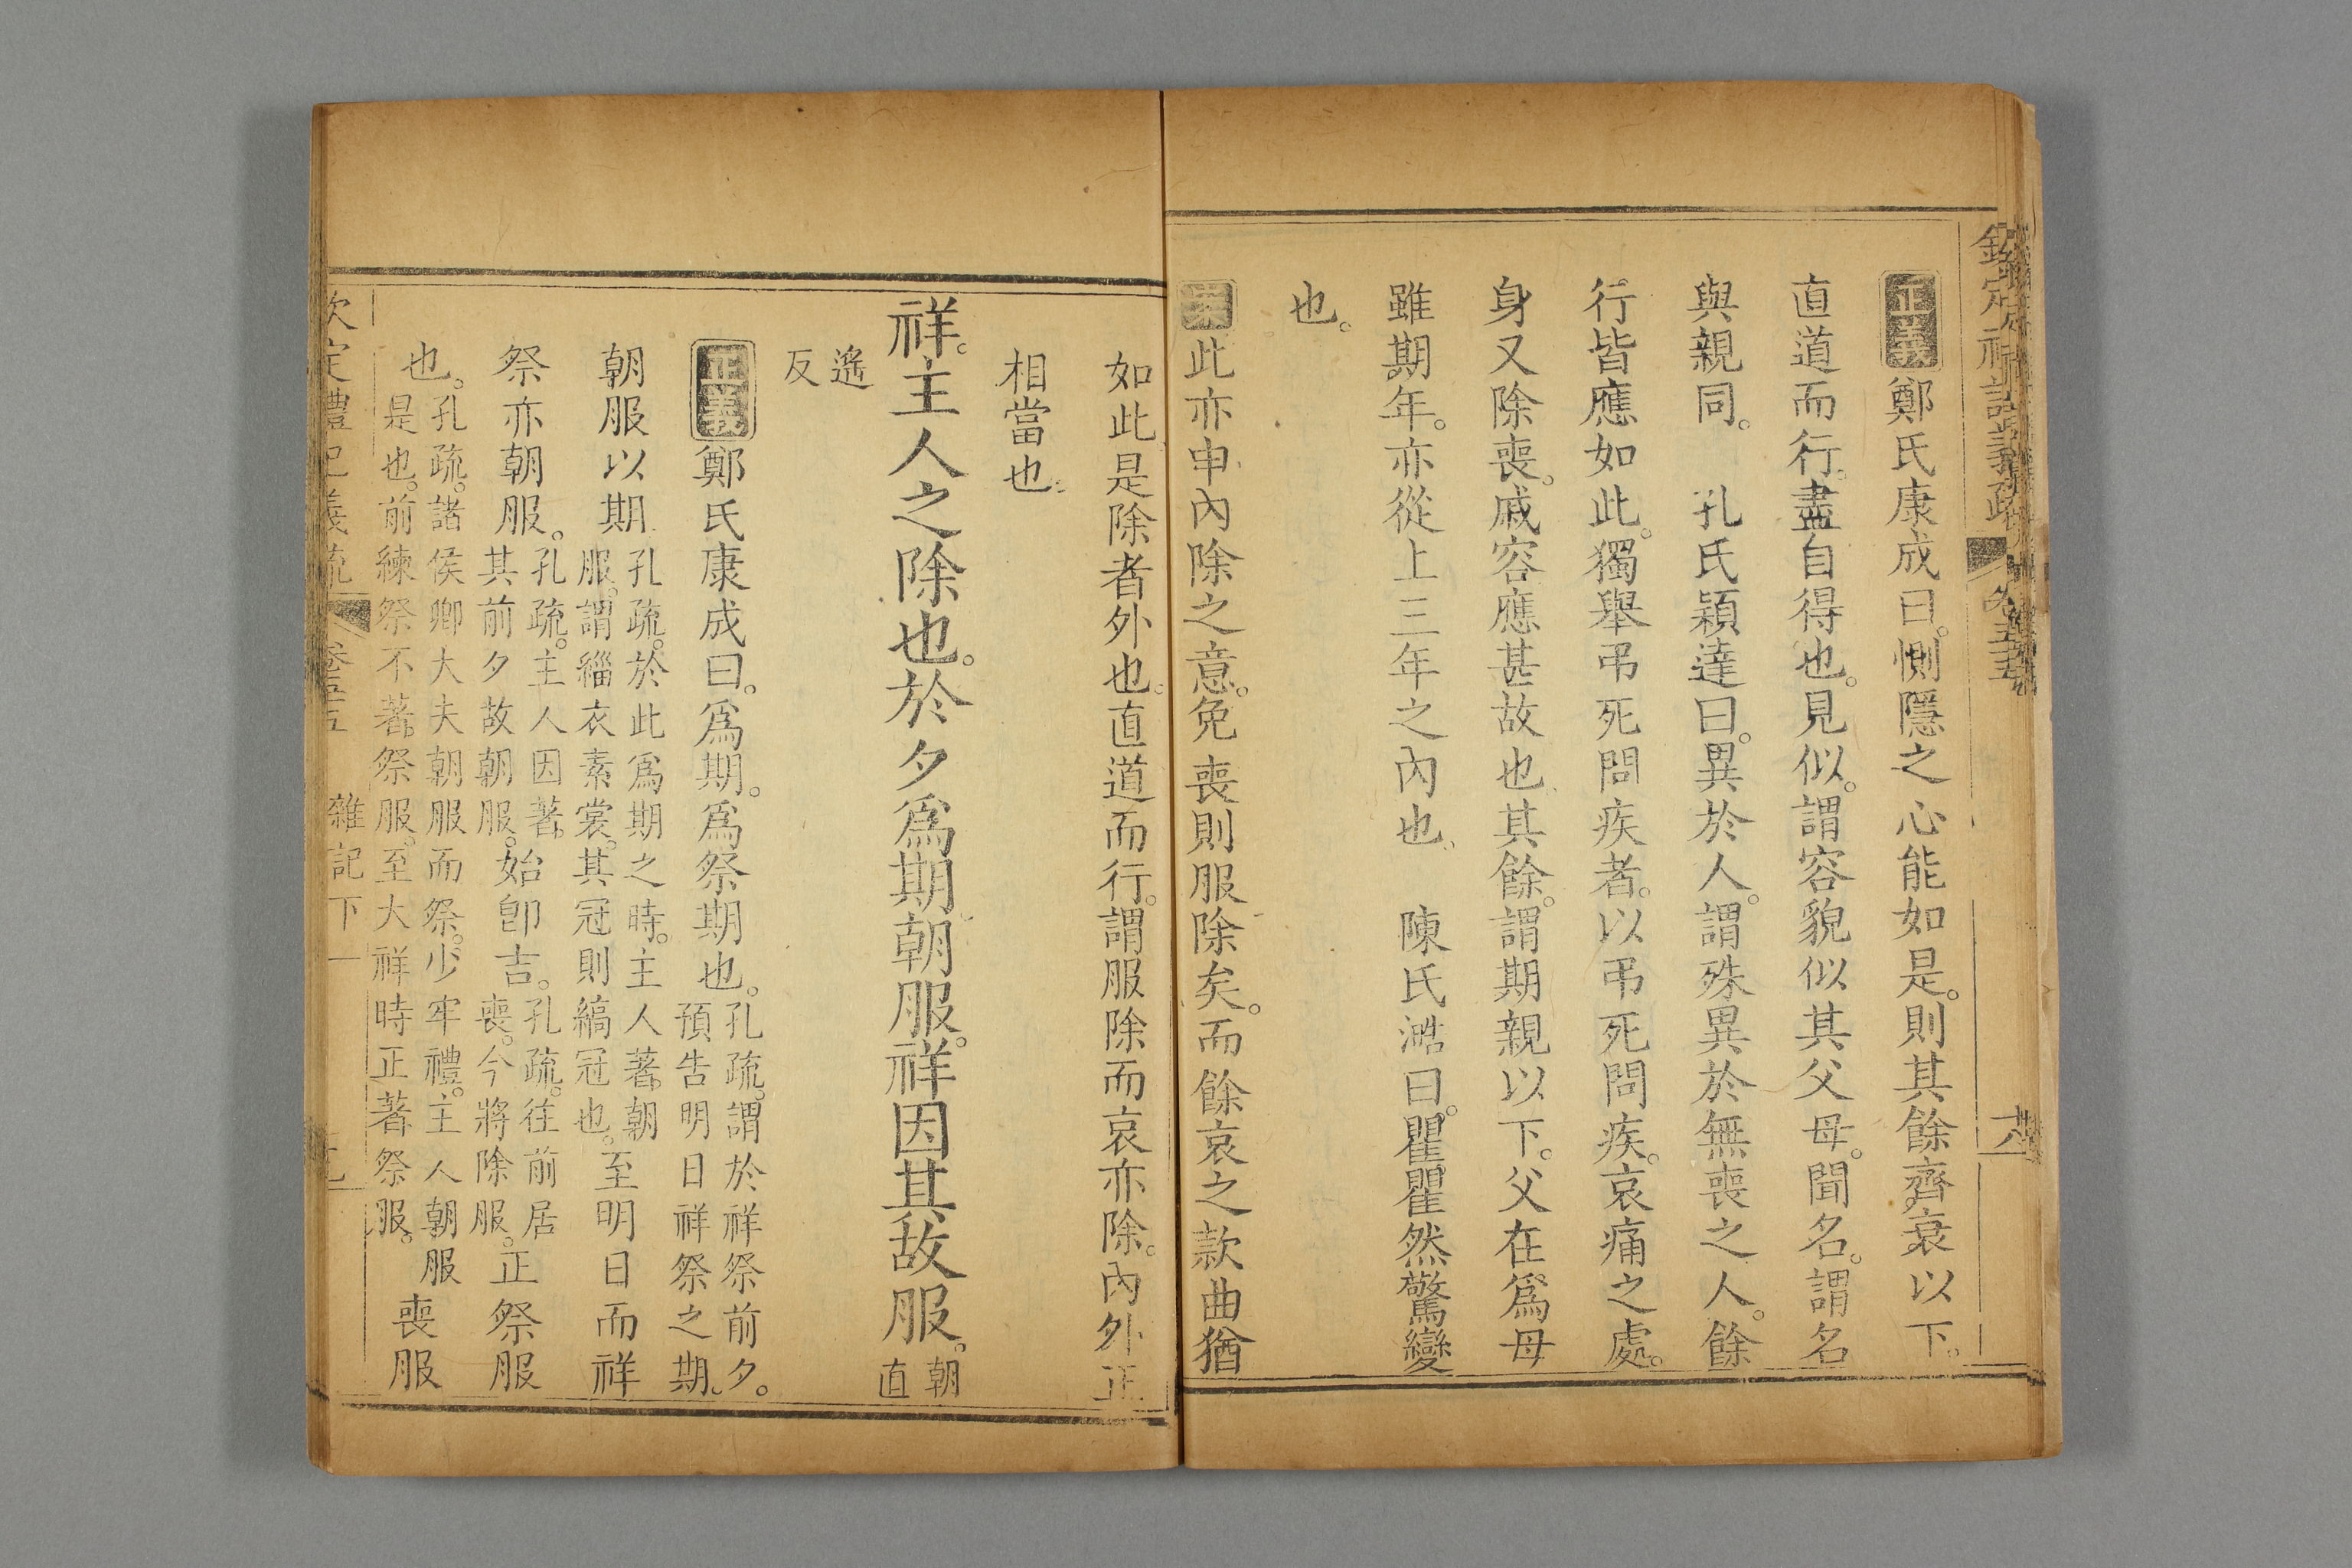 正義鄭氏康成曰。惻隱之心能如是。則其餘齊衰以下。
直道而行。盡自得也。見似。謂容貌似其父母。聞名。謂名
與親同。 孔氏穎達曰。異於人。謂殊異於無喪之人。餘
行皆應如此。獨舉弔死問疾者。以弔死問疾。哀痛之處。
身又除喪。戚容應甚故也。其餘。謂期親以下。父在爲母
雖期年。亦從上三年之內也。 陳氏澔曰。瞿瞿然驚變
也。
案此亦申內除之意。免喪則服除矣。而餘哀之款曲猶
如此是除者外也。直道而行。謂服除而哀亦除。內外正
相當也。
祥。主人之除也。於夕爲期朝服。祥因其故服。朝直
遙反
正義鄭氏康成曰。爲期。爲祭期也。孔疏。謂於祥祭前夕。預告明日祥祭之期。
朝服以期孔疏。於此爲期之時。主人著朝服。謂緇衣素裳。其冠則縞冠也。至明日而祥
祭亦朝服。孔疏。主人因著其前夕故朝服。始卽吉。孔疏。往前居喪。今將除服。正祭服
也。孔疏。諸侯卿大夫朝服而祭。少牢禮。主人朝服是也。前練祭不著祭服。至大祥時正著祭服。喪服
雜記下